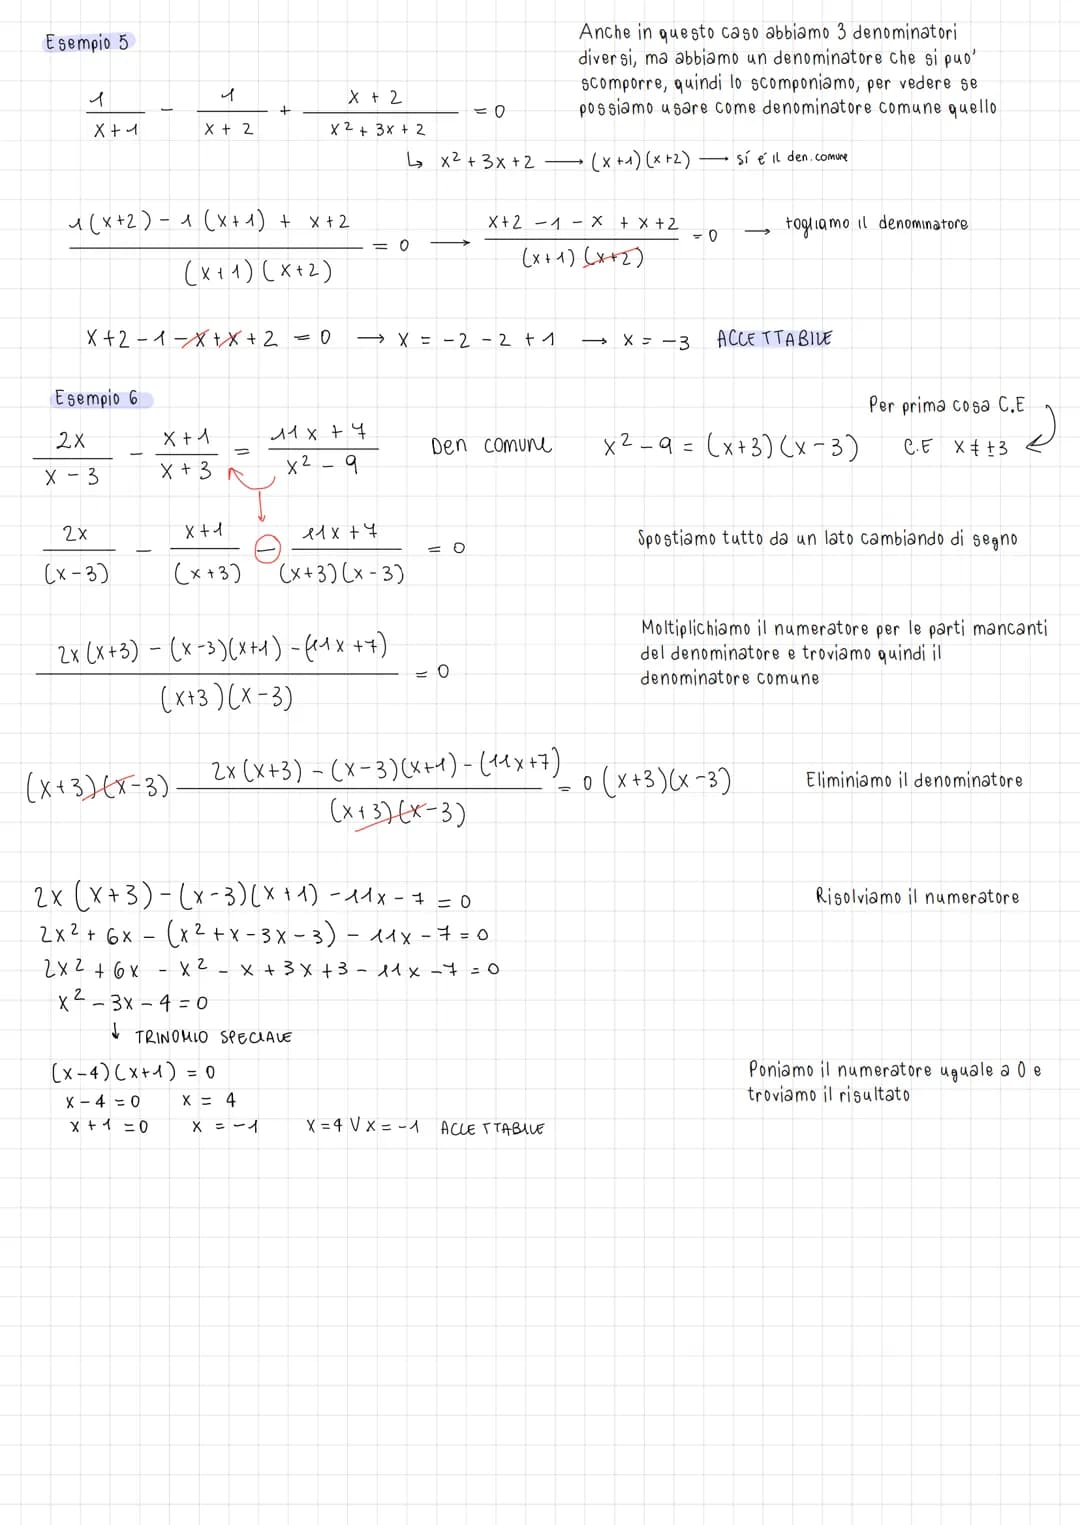 Esempio 5
Anche in questo caso abbiamo 3 denominatori
diversi, ma abbiamo un denominatore che si puo'
scomporre, quindi lo scomponiamo, per vedere se
possiamo usare come denominatore comune quello
1/(x+1) - 1/(x+2) + (x+2)/(x²+3x+2) = 0
↳ x²+3x+2 → (x+1)(x+2) → sí é il den. comune
(1(x+2) - 1(x+1) + x+2)/((x+1)(x+2)) = 0 → (x+2-1-x+x+2)/((x+1)(x+2)) = 0 → togliamo il denominatore
x+2-1-x+x+2 = 0 → x = -2-2+1 → x = -3 ACCETTABILE
Esempio 6
Per prima cosa C.E
2x/(x-3) - (x+1)/(x+3) = (11x+7)/(x²-9) Den comune x²-9 = (x+3)(x-3) C.E x≠±3
2x/(x-3) - (x+1)/(x+3) - (11x+7)/((x+3)(x-3)) = 0
Spostiamo tutto da un lato cambiando di segno
Moltiplichiamo il numeratore per le parti mancanti
del denominatore e troviamo quindi il
denominatore comune
(2x(x+3) - (x-3)(x+1) - (11x+7))/((x+3)(x-3)) = 0
(x+3)(x-3) (2x(x+3) - (x-3)(x+1) - (11x+7))/((x+3)(x-3)) = 0 (x+3)(x-3)
Eliminiamo il denominatore
2x(x+3)-(x-3)(x+1)-11x-7 = 0
Risolviamo il numeratore
2x²+6x-(x²+x-3x-3)-11x-7=0
2x²+6x-x²-x+3x+3-11x-7=0
x²-3x-4=0
↓ TRINOMIO SPECIALE
(x-4)(x+1) = 0
Poniamo il numeratore uguale a 0 e
troviamo il risultato
x-4=0 x = 4
x+1=0 x = -1 x=4 V x=-1 ACCETTABILE